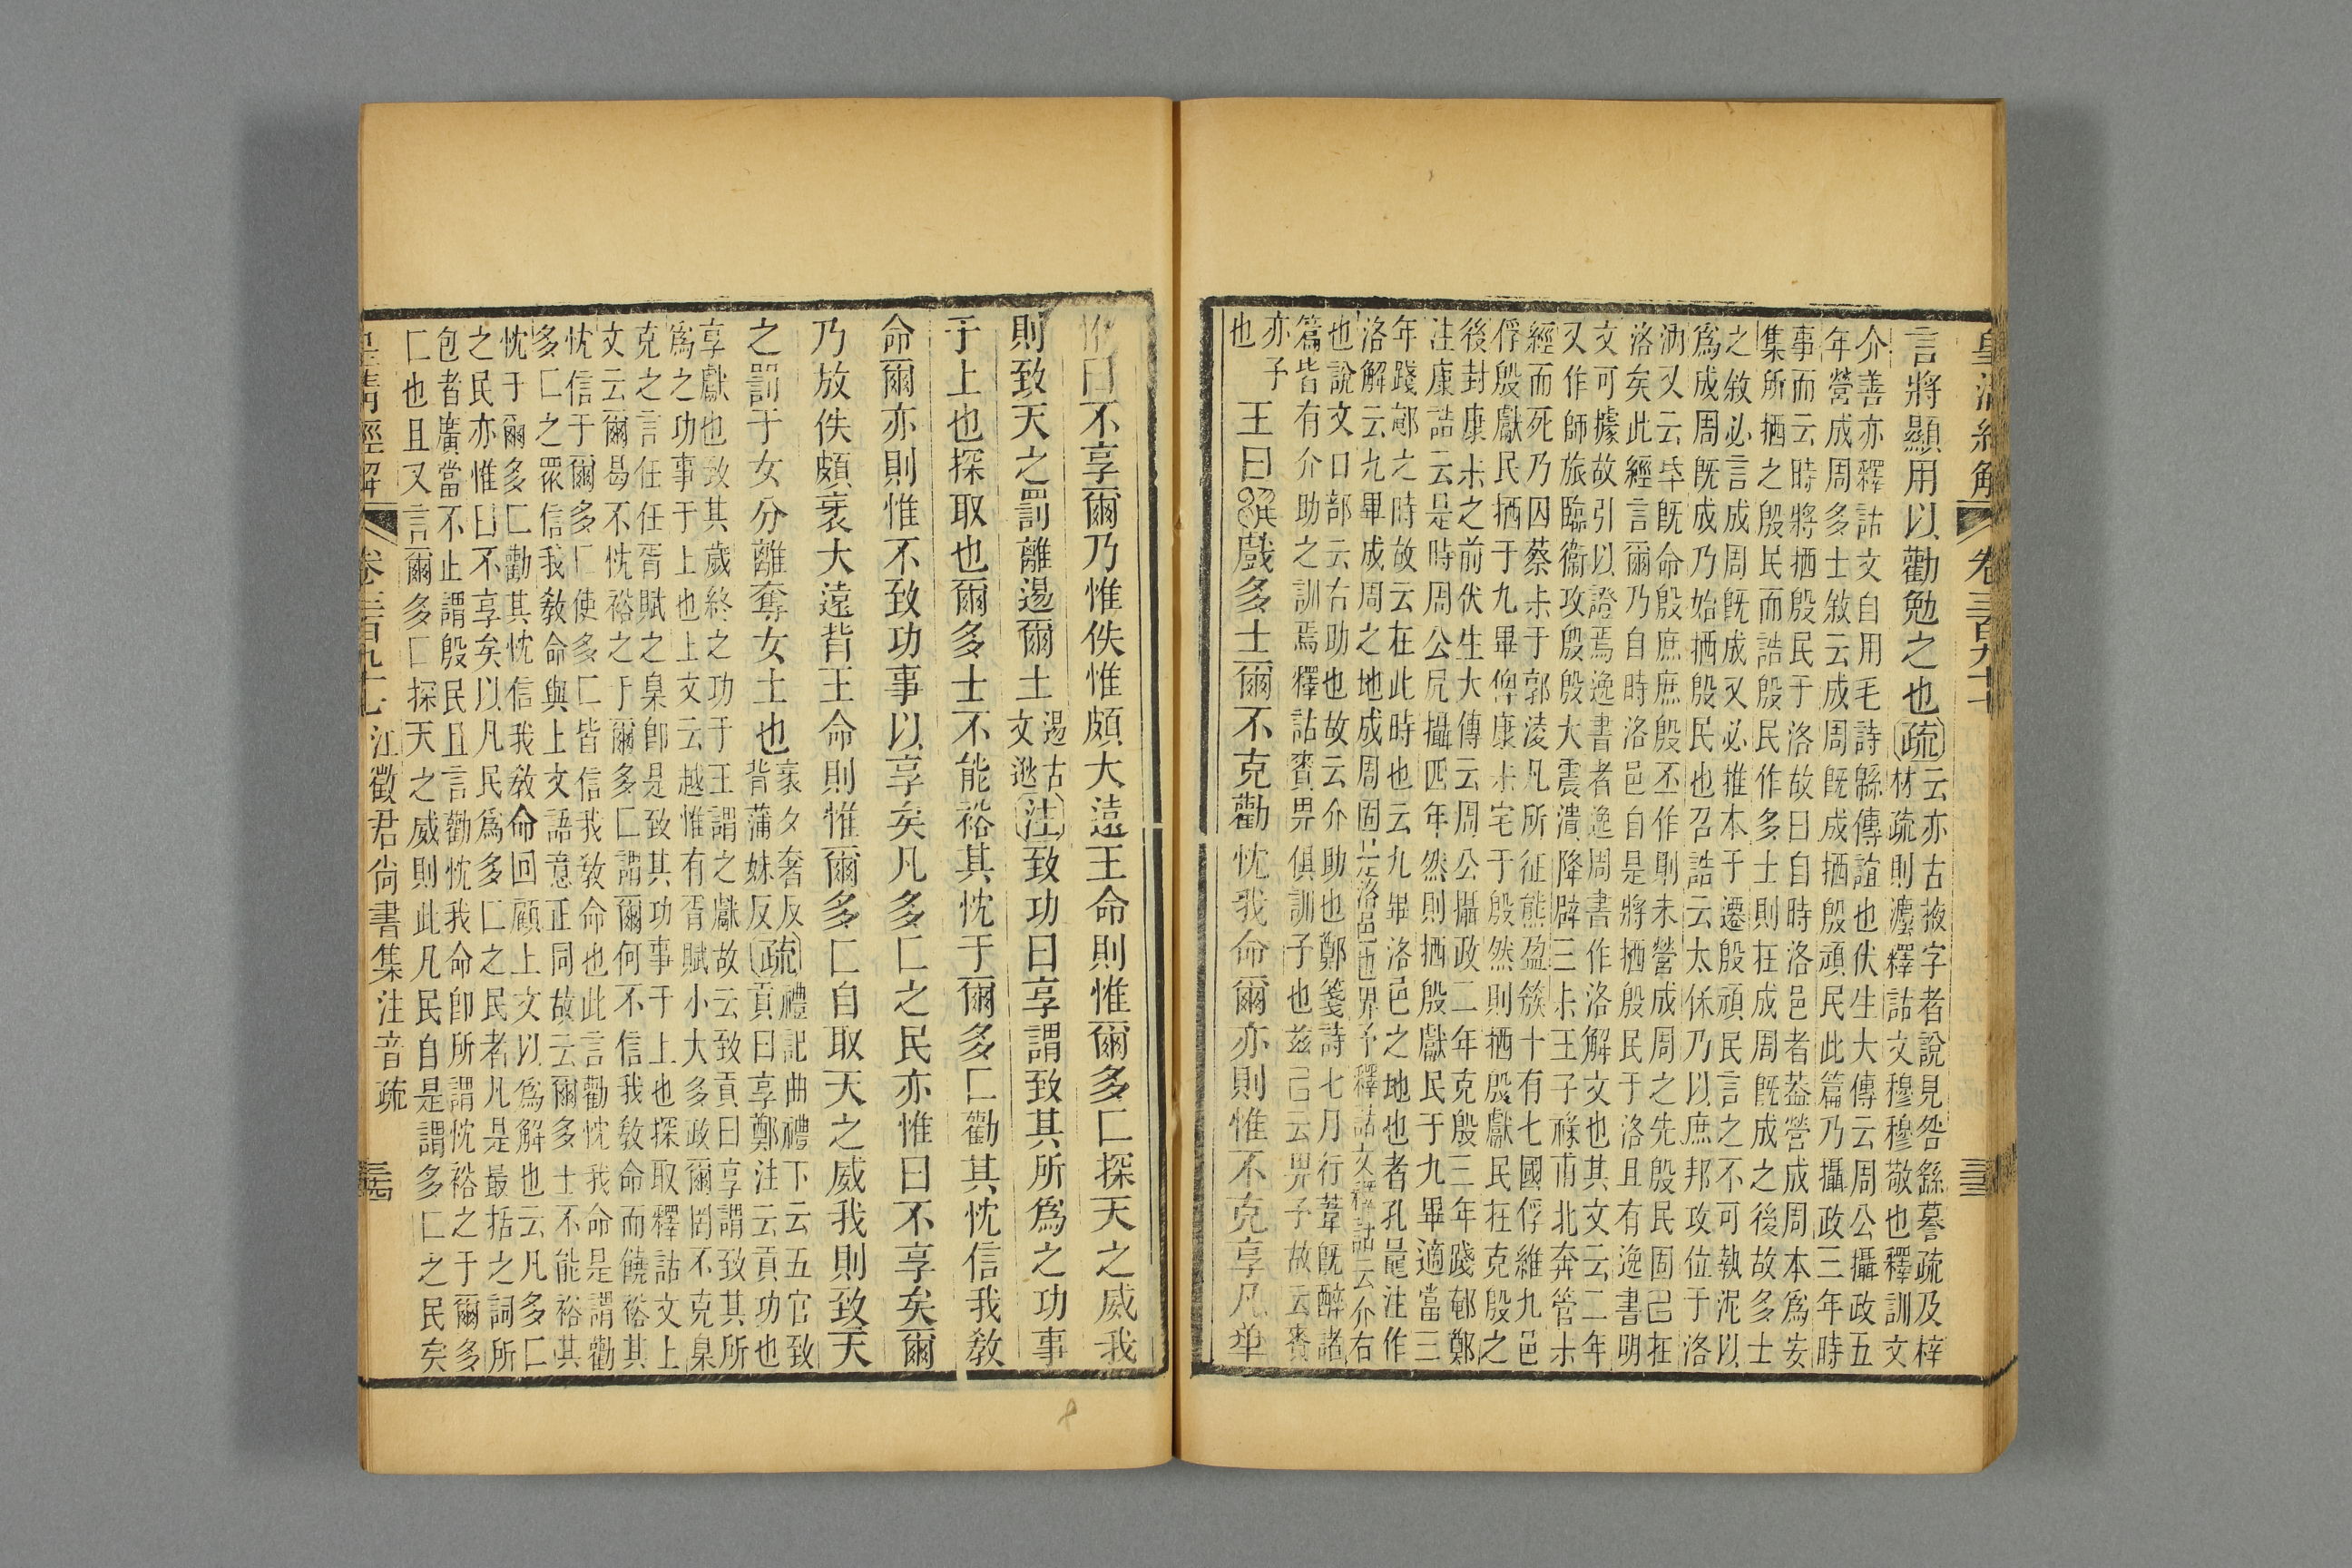 皇清經解 卷三百九十七
言將顯用以勸勉之也疏云亦古掖字者說見咎繇謩疏及梓
材疏則瀍釋詁文穆穆敬也釋訓文
介善亦釋詁文自用毛詩緜傳誼也伏生大傳云周公攝政五
年營成周多士敘云成周旣成栖殷頑民此篇乃攝政三年時
事而云時將栖殷民于洛故曰自時洛邑者葢營成周本爲安
集所栖之殷民而誥殷民作多士則在成周旣成之後故多士
之敘必言成周旣成又必推本于遷殷頑民言之不可執泥以
爲成周旣成乃始栖殷民也召誥云太保乃以庶邦攻位于洛
汭又云𠦪旣命殷庶庶殷丕作則未營成周之先殷民固己在
洛矣此經言爾乃自時洛邑自是將栖殷民于洛且有逸書明
文可據故引以證焉逸書者逸周書作洛解文也其文云二年
又作師旅臨衞攻殷殷大震潰降辟三朩王子祿甫北奔管朩
經而死乃囚蔡朩于郭淩凡所征熊盈簇十有七國俘維九邑
俘殷獻民栖于九畢俾康朩宅于殷然則栖殷獻民在克殷之
後封康朩之前伏生大傳云周公攝政二年克殷三年踐郼鄭
注康誥云是時周公凥攝四年然則栖殷獻民于九畢適當三
年踐郼之時故云在此時也云九畢洛邑之地也者孔鼂注作
洛解云九畢成周之地成周固是洛邑也畀予釋詁文釋詁云介右
也說文口部云右助也故云介助也鄭箋詩七月行葦旣醉諸
篇皆有介助之訓焉釋詁賚畀俱訓予也兹己云畀予故云賚
亦予
也 王曰㗊戲多士爾不克勸忱我命爾亦則惟不克享凡𠦪
惟曰不享爾乃惟佚惟頗大遠王命則惟爾多匚探天之威我
則致天之罰離逷爾土逷古
文逖注致功曰享謂致其所爲之功事
于上也探取也爾多士不能裕其忱于爾多匚勸其忱信我敎
命爾亦則惟不致功事以享矣凡多匚之民亦惟曰不享矣爾
乃放佚頗衺大遠背王命則惟爾多匚自取天之威我則致天
之罰于女分離奪女土也衺夕奢反
背蒲妹反疏禮記曲禮下云五官致
貢曰享鄭注云貢功也
享獻也致其歲終之功于王謂之獻故云致貢曰享謂致其所
爲之功事于上也上文云越惟有胥賦小大多政爾罔不克臬
克之言任任胥賦之臬卽是致其功事于上也探取釋詁文上
文云爾曷不忱裕之于爾多匚謂爾何不信我敎命而饒裕其
忱信于爾多匚使多匚皆信我敎命也此言勸忱我命是謂勸
多匚之眾信我敎命與上文語意正同故云爾多士不能裕其
忱于爾多匚勸其忱信我敎命回顧上文以爲解也云凡多匚
之民亦惟曰不享矣以凡民爲多匚之民者凡是最括之詞所
包者廣當不止謂殷民且言勸忱我命卽所謂忱裕之于爾多
匚也且又言爾多匚探天之威則此凡民自是謂多匚之民矣
皇淸經解 卷三百九十七 江徵君尙書集注音疏